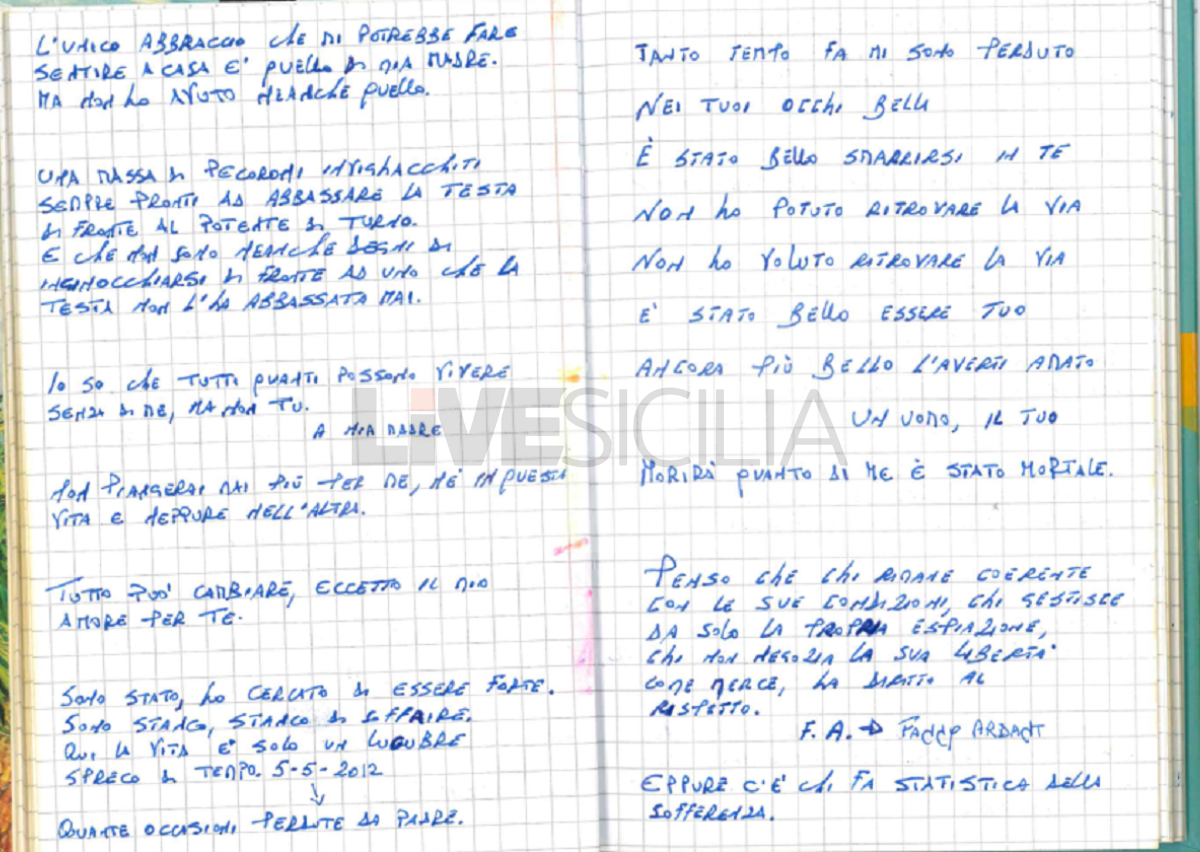 L'UNICO ABBRACCIO CHE MI POTREBBE FARE
SENTIRE A CASA E' QUELLO DI MIA MADRE.
MA NON HO AVUTO NEANCHE QUELLO.
UNA MASSA DI PECORONI INVIGLIACCHITI
SEMPRE PRONTI AD ABBASSARE LA TESTA
DI FRONTE AL POTENTE DI TURNO.
E CHE NON SONO NEANCHE DEGNI DI
INGINOCCHIARSI DI FRONTE AD UNO CHE LA
TESTA NON L'HA ABBASSATA MAI.
IO SO CHE TUTTI QUANTI POSSONO VIVERE
SENZA DI ME, MA NON TU.
A MIA MADRE
NON PIANGERAI MAI PIÙ PER ME, NÉ IN QUESTA
VITA E NEPPURE NELL'ALTRA.
TUTTO PUO' CAMBIARE, ECCETTO IL MIO
AMORE PER TE.
SONO STATO, HO CERCATO DI ESSERE FORTE.
SONO STANCO, STANCO DI SOFFRIRE.
QUI LA VITA E' SOLO UN LUGUBRE
SPRECO DI TEMPO. 5-5-2012
↓
QUANTE OCCASIONI PERDUTE DA PADRE.
TANTO TEMPO FA MI SONO PERDUTO
NEI TUOI OCCHI BELLI
È STATO BELLO SMARRIRSI IN TE
NON HO POTUTO RITROVARE LA VIA
NON HO VOLUTO RITROVARE LA VIA
E' STATO BELLO ESSERE TUO
ANCORA PIÙ BELLO L'AVERTI AMATO
UN UOMO, IL TUO
MORIRÀ QUANTO DI ME È STATO MORTALE.
PENSO CHE CHI RIMANE COERENTE
CON LE SUE CONVINZIONI, CHI GESTISCE
DA SOLO LA PROPRIA ESPIAZIONE,
CHI NON NEGOZIA LA SUA LIBERTA'
COME MERCE, HA DIRITTO AL
RISPETTO.
F. A. → FANNY ARDANT
EPPURE C'È CHI FA STATISTICA DELLA
SOFFERENZA.
LiVESICILIA